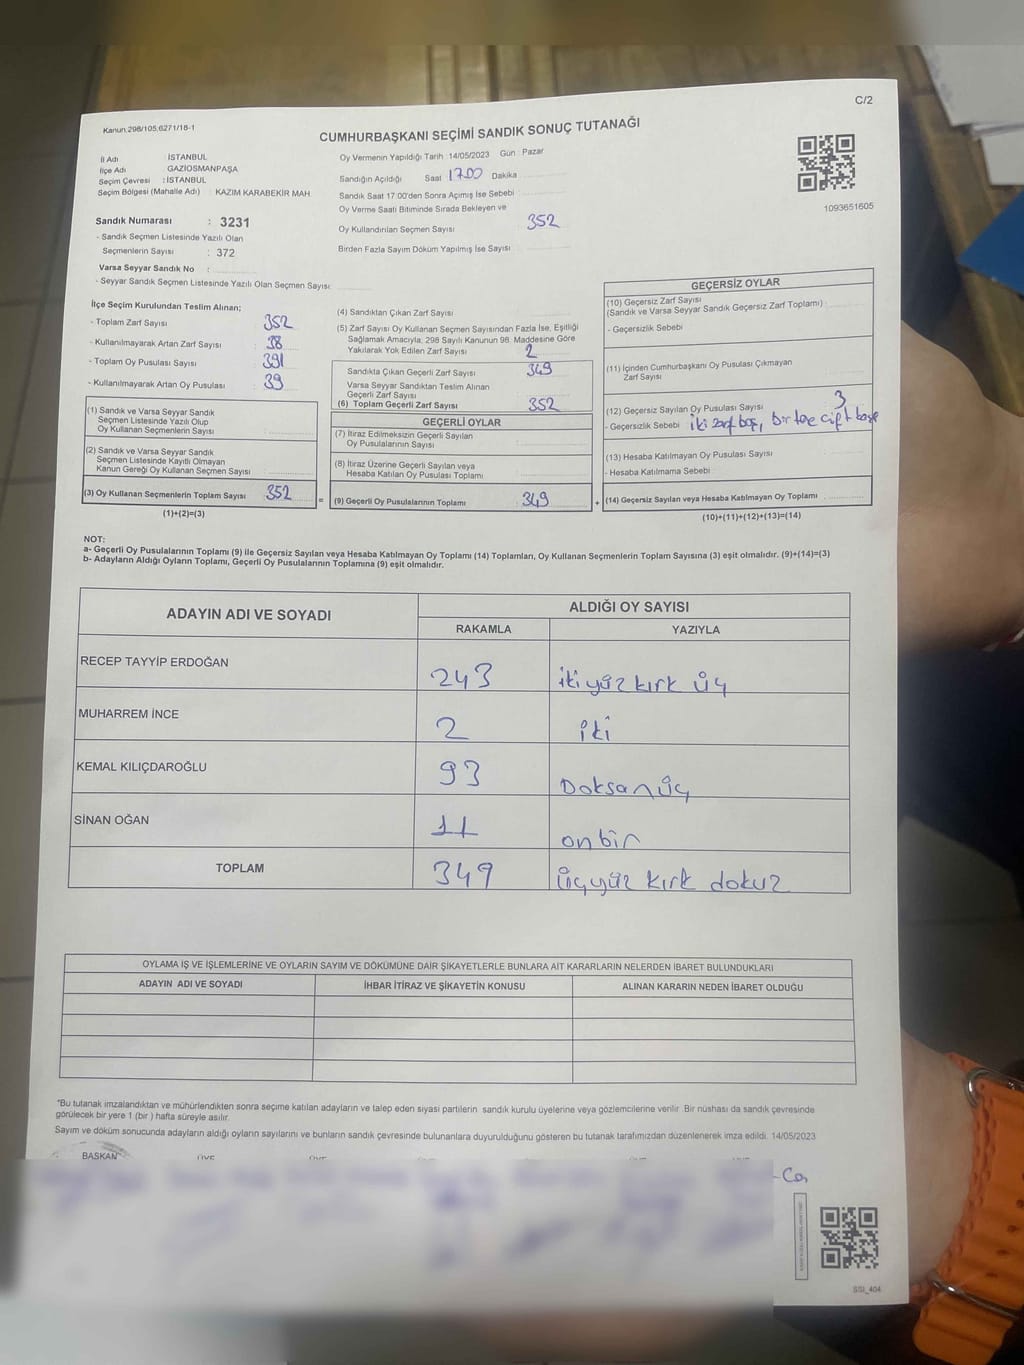 C/2
Kanun:298/105,6271/18-1
CUMHURBAŞKANI SEÇİMİ SANDIK SONUÇ TUTANAĞI
İl Adı : İSTANBUL
İlçe Adı GAZİOSMANPAŞA
Seçim Çevresi : İSTANBUL
Seçim Bölgesi (Mahalle Adı) : KAZIM KARABEKİR MAH
Sandık Numarası : 3231
- Sandık Seçmen Listesinde Yazılı Olan
Seçmenlerin Sayısı : 372
Varsa Seyyar Sandık No :
- Seyyar Sandık Seçmen Listesinde Yazılı Olan Seçmen Sayısı:
Oy Vermenin Yapıldığı Tarih 14/05/2023 Gün : Pazar
Sandığın Açıldığı Saat 17.00 Dakika
Sandık Saat 17:00'den Sonra Açımış İse Sebebi
Oy Verme Saati Bitiminde Sırada Bekleyen ve
Oy Kullandırılan Seçmen Sayısı 352
Birden Fazla Sayım Döküm Yapılmış İse Sayısı
1093651605
İlçe Seçim Kurulundan Teslim Alınan;
- Toplam Zarf Sayısı 352
- Kullanılmayarak Artan Zarf Sayısı 38
- Toplam Oy Pusulası Sayısı 391
- Kullanılmayarak Artan Oy Pusulası 39
(1) Sandık ve Varsa Seyyar Sandık
Seçmen Listesinde Yazılı Olup
Oy Kullanan Seçmenlerin Sayısı
(2) Sandık ve Varsa Seyyar Sandık
Seçmen Listesinde Kayıtlı Olmayan
Kanun Gereği Oy Kullanan Seçmen Sayısı
(3) Oy Kullanan Seçmenlerin Toplam Sayısı 352
(1)+(2)=(3)
(4) Sandıktan Çıkan Zarf Sayısı
(5) Zarf Sayısı Oy Kullanan Seçmen Sayısından Fazla İse, Eşitliği
Sağlamak Amacıyla; 298 Sayılı Kanunun 98. Maddesine Göre
Yakılarak Yok Edilen Zarf Sayısı 2
Sandıkta Çıkan Geçerli Zarf Sayısı 349
Varsa Seyyar Sandıktan Teslim Alınan
Geçerli Zarf Sayısı
(6) Toplam Geçerli Zarf Sayısı 352
GEÇERLİ OYLAR
(7) İtiraz Edilmeksizin Geçerli Sayılan
Oy Pusulalarının Sayısı
(8) İtiraz Üzerine Geçerli Sayılan veya
Hesaba Katılan Oy Pusulası Toplamı
= (9) Geçerli Oy Pusulalarının Toplamı 349 +
GEÇERSİZ OYLAR
(10) Geçersiz Zarf Sayısı
(Sandık ve Varsa Seyyar Sandık Geçersiz Zarf Toplamı)
- Geçersizlik Sebebi
(11) İçinden Cumhurbaşkanı Oy Pusulası Çıkmayan
Zarf Sayısı
(12) Geçersiz Sayılan Oy Pusulası Sayısı 3
- Geçersizlik Sebebi iki zarf boş, bir tane çift
(13) Hesaba Katılmayan Oy Pusulası Sayısı
- Hesaba Katılmama Sebebi
(14) Geçersiz Sayılan veya Hesaba Katılmayan Oy Toplamı
(10)+(11)+(12)+(13)=(14)
NOT:
a- Geçerli Oy Pusulalarının Toplamı (9) ile Geçersiz Sayılan veya Hesaba Katılmayan Oy Toplamı (14) Toplamları, Oy Kullanan Seçmenlerin Toplam Sayısına (3) eşit olmalıdır. (9)+(14)=(3)
b- Adayların Aldığı Oyların Toplamı, Geçerli Oy Pusulalarının Toplamına (9) eşit olmalıdır.
ADAYIN ADI VE SOYADI ALDIĞI OY SAYISI
RAKAMLA YAZIYLA
RECEP TAYYİP ERDOĞAN 243 ikiyüz kırk üç
MUHARREM İNCE 2 iki
KEMAL KILIÇDAROĞLU 93 Doksanüç
SİNAN OĞAN 11 onbir
TOPLAM 349 üçyüz kırk dokuz
OYLAMA İŞ VE İŞLEMLERİNE VE OYLARIN SAYIM VE DÖKÜMÜNE DAİR ŞİKAYETLERLE BUNLARA AİT KARARLARIN NELERDEN İBARET BULUNDUKLARI
ADAYIN ADI VE SOYADI İHBAR İTİRAZ VE ŞİKAYETİN KONUSU ALINAN KARARIN NEDEN İBARET OLDUĞU
*Bu tutanak imzalandıktan ve mühürlendikten sonra seçime katılan adayların ve talep eden siyasi partilerin sandık kurulu üyelerine veya gözlemcilerine verilir. Bir nüshası da sandık çevresinde
görülecek bir yere 1 (bir ) hafta süreyle asılır.
Sayım ve döküm sonucunda adayların aldığı oyların sayılarını ve bunların sandık çevresinde bulunanlara duyurulduğunu gösteren bu tutanak tarafımızdan düzenlenerek imza edildi. 14/05/2023
BAŞKAN
SSI_404